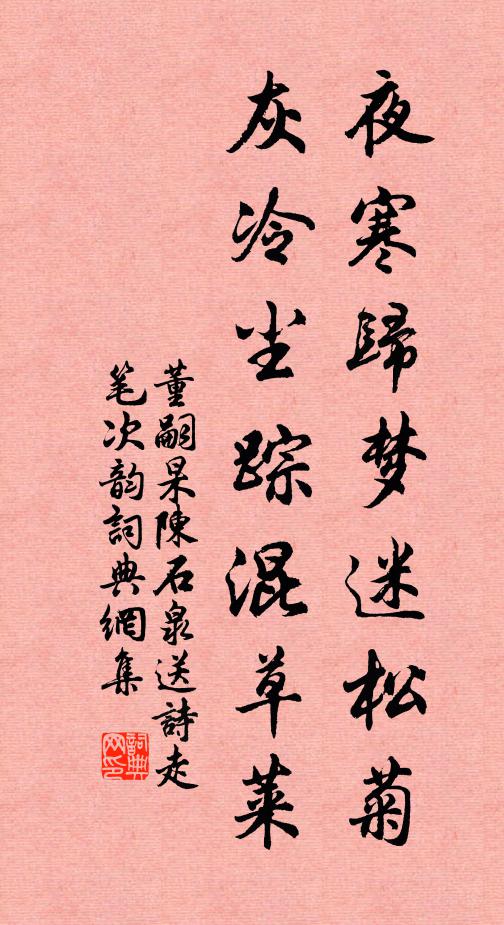 夜寒歸梦迷松菊
灰冷尘踪混草莱
董嗣杲陳石泉送詩走
笔次韵詞典網集
詞典网印